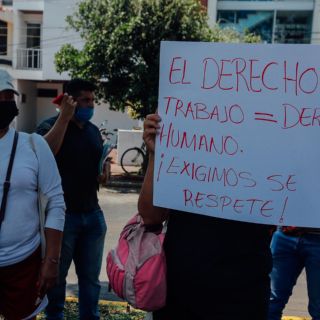 EL DERECHO
TRABAJO = DER
HUMANO.
¡EXIGIMOS SE
RESPETE!